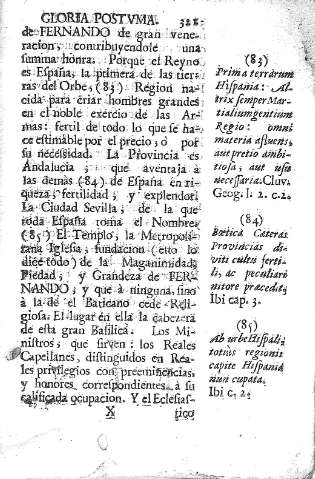 GLORIA POSTVMA. 321
de FERNANDO de gran vene-
racion, contribuyendole una
summa honra. Porque el Reyno
es España, la primera de las tier-
ras del Orbe, (83) Région na-
cida para criar hombres grandes
en el noble exercio de las Ar-
mas: fertil de todo lo que se ha-
ce estimable por el precio, ò por
su necessidad. La Provincia es
Andalucìa; que aventaja à
las demàs (84) de España en ri-
queza, fertilidad, y explendor.
La Ciudad Sevilla, de la que
toda España toma el Nombre,
(85) El Templo, la Metropoli-
tana Iglesia, fundacion (esto lo
dice todo) de la Maganimidad,
Piedad, y Grandeza de FER-
NANDO; y que à ninguna, sino
à la de el Baticano cede Reli-
giosa. El lugar en ella la cabezera
de esta gran Basilica. Los Mi-
nistros, que sirven: los Reales
Capellanes, distinguidos en Rea-
les privilegios con preeminencias,
y honores correspondientes à su
calificada ocupacion. Y el Eclesias-
X tico
(83)
Prima terrarum
Hispania: Al-
trix semper Mar-
tialium gentium
Regio: omni
materia afluens,
aut pretio ambi-
tiosa, aut usu
necessaria. Cluv.
Geog. l. 2. c. 2.
(84)
Bætica Cæteras
Provincias di-
viti cultu ferti-
li, ac peculiari
nitore præcedit.
Ibi cap. 3.
(85)
Ab urbe Hispali,
totius regionis
capite Hispania
nuncupata.
Ibi c. 2.